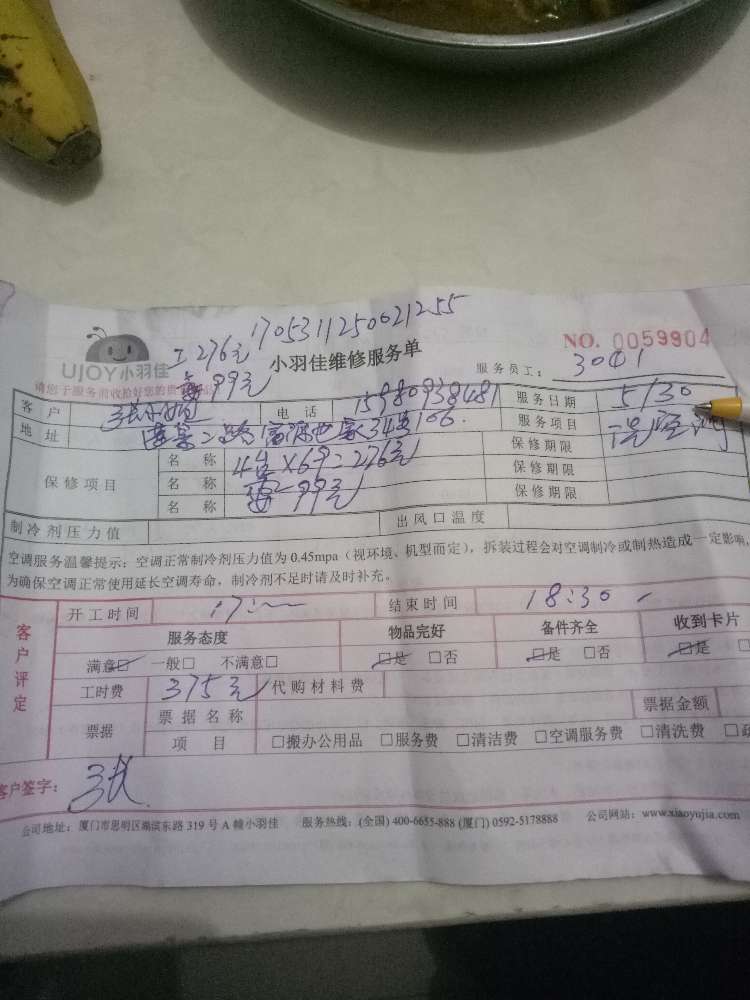 1705311250021255
工276元
NO. 0059904
UJOY小羽佳
小羽佳维修服务单
服务员工: 3001
请您于服务前收拾好您的贵
99元
客户 张小姐 电话 15980938481 服务日期 5/30
地址 二路 源 34 106. 服务项目
保修项目 名称 4台×69=276元 保修期限
名称 99元 保修期限
名称 保修期限
制冷剂压力值 出风口温度
空调服务温馨提示:空调正常制冷剂压力值为 0.45mpa(视环境、机型而定),拆装过程会对空调制冷或制热造成一定影响,
为确保空调正常使用延长空调寿命,制冷剂不足时请及时补充。
客户评定
开工时间 17: 结束时间 18:30
服务态度 物品完好 备件齐全 收到卡片
满意☑ 一般□ 不满意□ ☑是 □否 ☑是 □否 ☑是 □
工时费 375元 代购材料费
票据 票据名称 票据金额
项目 □搬办公用品 □服务费 □清洁费 □空调服务费 □清洗费 □疏
客户签字: 张
公司地址:厦门市思明区湖滨东路 319 号 A 幢小羽佳 服务热线:(全国) 400-6655-888 (厦门) 0592-5178888 公司网站:www.xiaoyujia.com